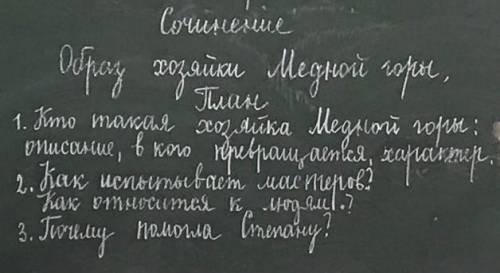 Сочинение
Образ хозяйки Медной горы,
План
1. Кто такая хозяйка Медной горы:
описание, в кого превращается, характер.
2. Как испытывает мастеров?
Как относится к людям.?
3. Почему помогла Степану?